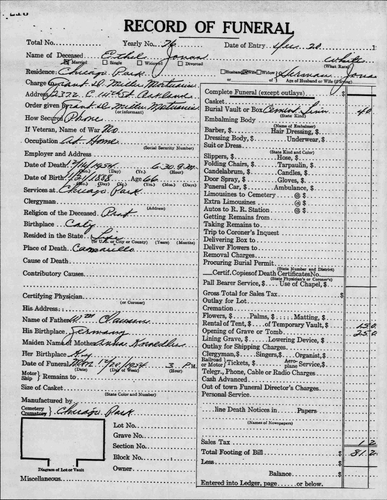 RECORD OF FUNERAL
Total No. Yearly No. 76 Date of Entry Dec. 20
Name of Deceased Ethel Jonas White
Married Single Widowed Divorced (What Race)
Residence: Chicago Park Husband Widow Wife of Herman Jonas
Age of Husband or Wife (if living)
Charge: Grant D. Miller Mortuaries
Address: 2372 E. 14th St. Oakland
Order given Grant D. Miller Mortuaries
(or informant)
How Secured Phone
If Veteran, Name of War No
Occupation At Home
(Social Security Number)
Employer and Address
Date of Death 1954
Date of Birth 1888 Age 66
Services at Chicago Park
Clergyman
Religion of the Deceased Prot
Birthplace Caly
Resided in the State Life
(or U.S., City or County) (Years) (Months)
Place of Death Camarillo
Cause of Death
Contributory Causes
Certifying Physician
(or Coroner)
His Address
Name of Father Wm Clausen
His Birthplace Germany
Maiden Name of Mother Anna
Her Birthplace
Date of Funeral Mon. 12/20/1954 3 P.M.
(Date) (Day of Week)
Motor Ship Remains to
Size of Casket
(State Color and Number)
Manufactured by
Cemetery Crematory Chicago Park
Lot No.
Grave No.
Section No.
Block No.
Owner
Diagram of Lot or Vault
Miscellaneous
Complete Funeral (except outlays) $
Casket
Burial Vault or Box 40
(State Kind)
Embalming Body
(Name of Embalmer)
Barber, $ Hair Dressing, $
Dressing Body, $ Underwear, $
Suit or Dress
(State Kind and Color)
Slippers, $ Hose, $
Folding Chairs, $ Tarpaulin, $
Candelabrum, $ Candles, $
Door Spray, $ Gloves, $
Funeral Car, $ Ambulance, $
Limousines to Cemetery @ $
Extra Limousines @ $
Autos to R. R. Station @ $
Getting Remains from
Taking Remains to
Trip to Coroner's Inquest
Delivering Box to
Deliver Flowers to
Removal Charges
Procuring Burial Permit
(State Number and District)
Certif. Copies of Death Certificates No.
(State Physician's or Coroner's)
Pall Bearer Service, $ Use of Chapel, $
Gross Total for Sales Tax $
Outlay for Lot
Cremation
Flowers, $ Palms, $ Matting, $
Rental of Tent, $ of Temporary Vault, $ 15.0
Opening of Grave or Tomb 25.0
Lining Grave, $ Lowering Device, $
Outlay for Shipping Charges
Clergyman, $ Singers, $ Organist, $
Railroad or Motor Tickets, $ Aeroplane Service, $
Telegr., Phone, Cable or Radio Charges
Cash Advanced
Out of town Funeral Director's Charges
Personal Service
line Death Notices in Papers
(Names of Newspapers)
Sales Tax 1.2
Total Footing of Bill $ 81.2
Less
Balance $
Entered into Ledger, page or below.